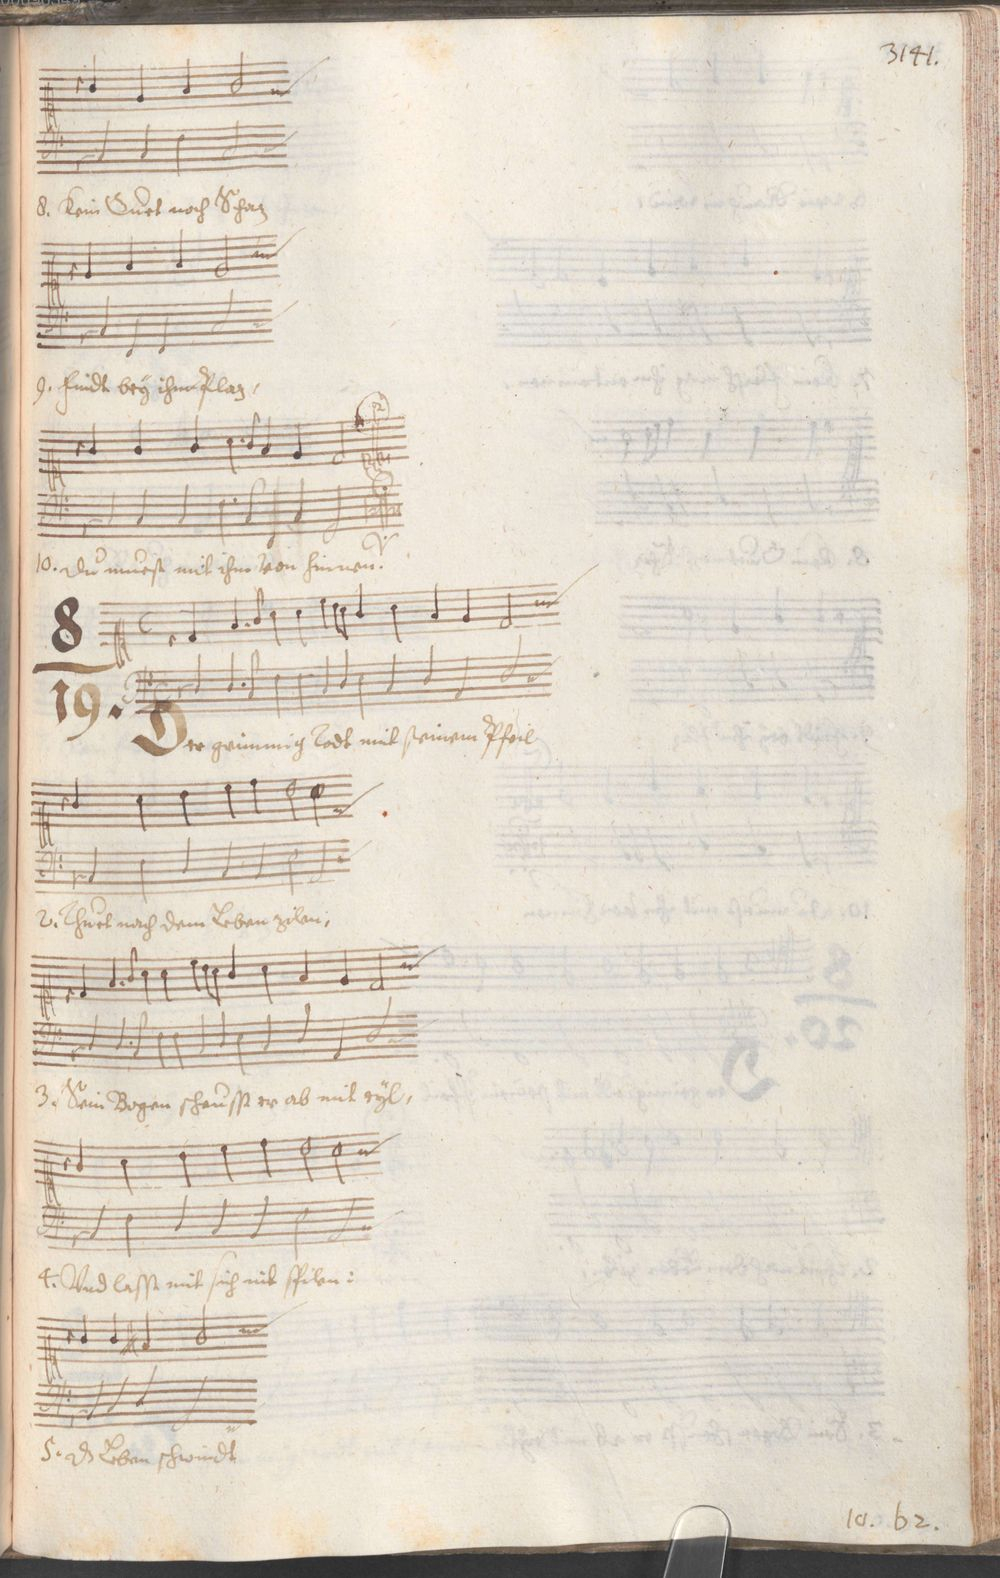 3141.
8. Kein Guet noch Schaz
9. Findt beÿ ihm Plaz,
10. Du muest mit ihm von hinnen.
8
19.
Der grimmig Todt mit seinem Pfeil
2. Thuet nach dem Leben zilen,
3. Sein Bogen scheusst er ab mit eyl,
4. Vnd lasst mit sich nit spilen:
5. Leben schwindt